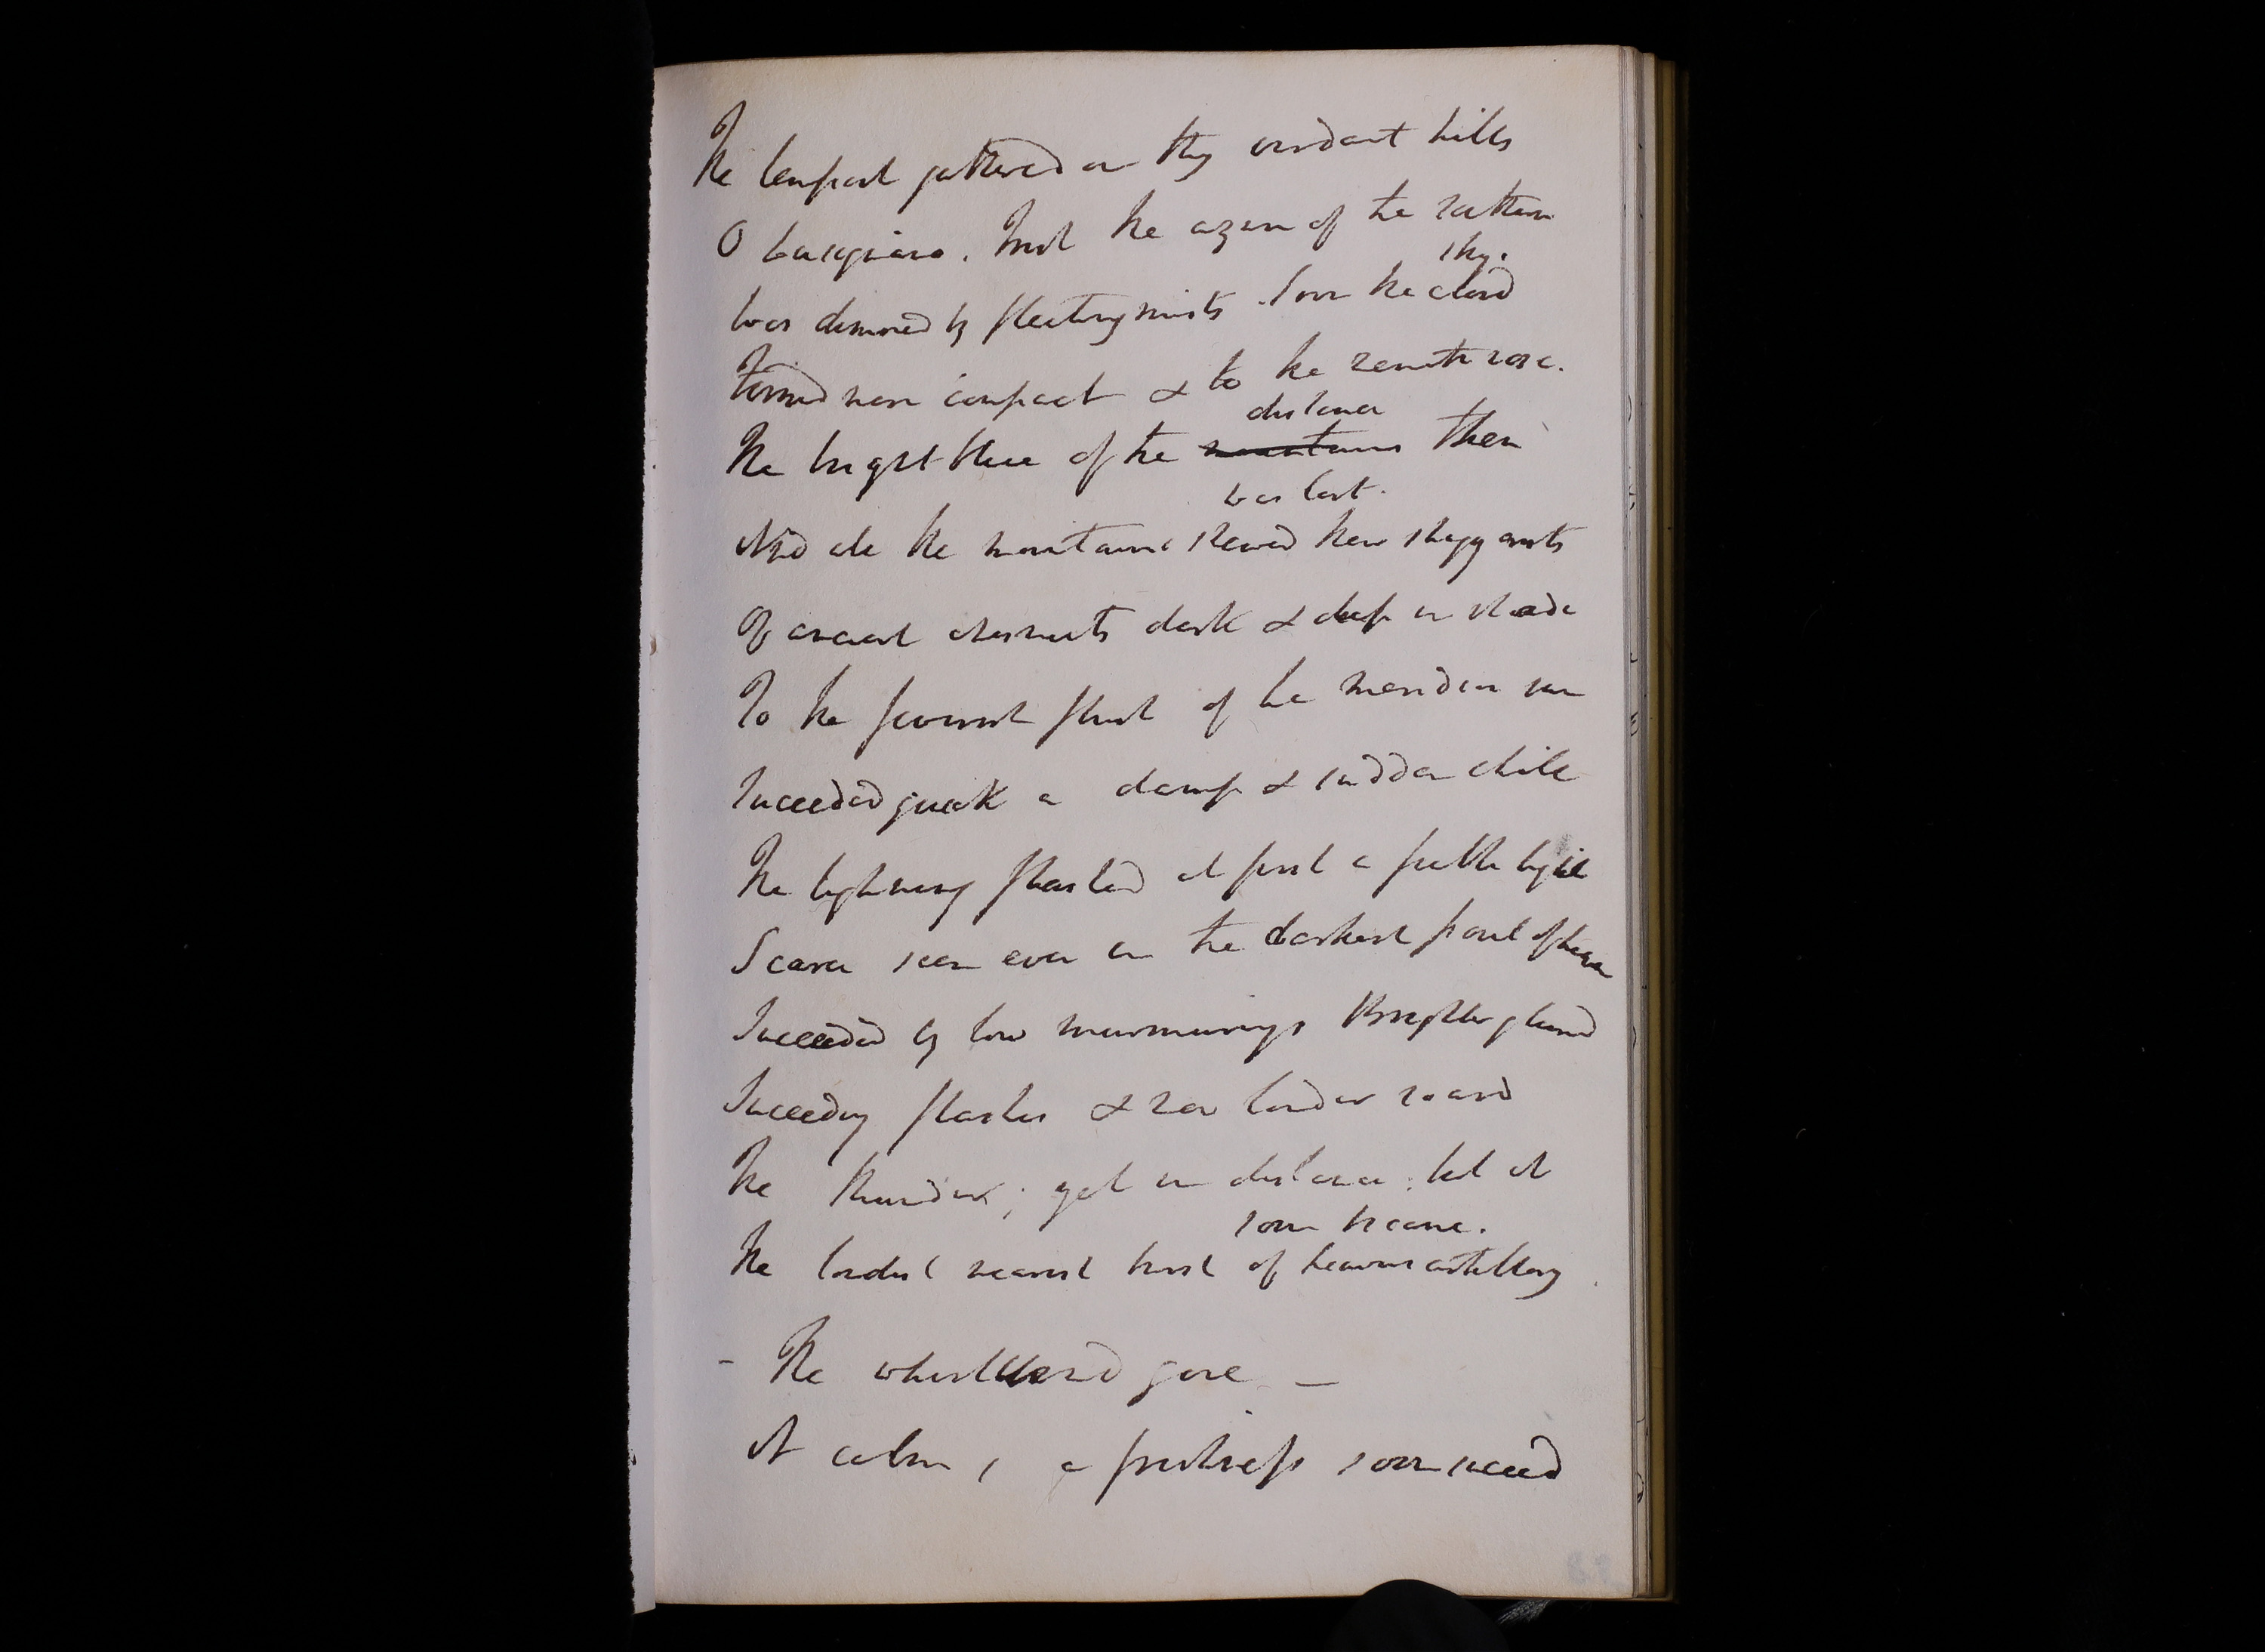 The tempest gathered on thy verdant hills
O . First the azure of the southern
sky.
Was dimmed by fleeting mists . Soon the cloud
Formed more compact & to the zenith rose.
distance
The bright blue of the mountains then
was lost.
And all the mountains shewed their shaggy coats
Of ancient chesnuts dark & deep in shade
To the fervent flush of the meridian sun
Succeeded quick a damp & sudden chill
The lightning flashed at first a feeble light
Scarce seen even in the darkest point of heaven
Succeeded by low murmurings Brighter gleamed
Succeeding flashes & now louder roared
The thunder; yet in distance. but it
soon became.
The loudest nearest burst of heavens artillery
- The whirlwind gone —
A calm , a freshness soon succeed